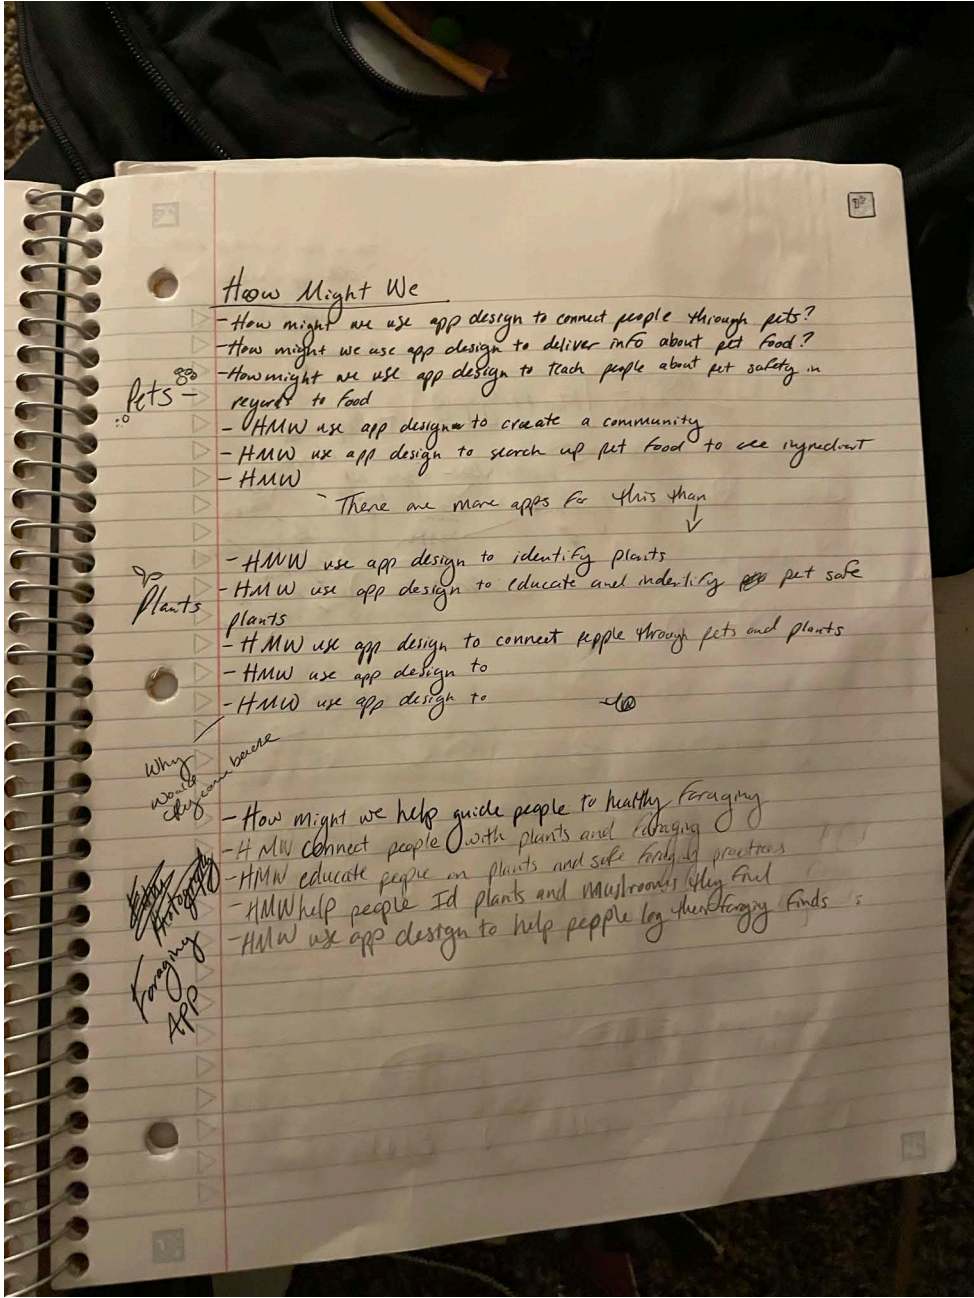 How Might We
- How might we use app design to connect people through pets?
- How might we use app design to deliver info about pet food?
- How might we use app design to teach people about pet safety in
regards to food
Pets -
- HMW use app design to create a community
- HMW use app design to search up pet food to see ingredient
- HMW
There are more apps for this than
- HMW use app design to identify plants
- HMW use app design to educate and indentify pet safe
plants
Plants
- HMW use app design to connect people through pets and plants
- HMW use app design to
- HMW use app design to
Why
would
they come
- How might we help guide people to healthy foraging
- HMW connect people with plants and foraging
- HMW educate people on plants and safe foraging practices
- HMW help people Id plants and mushrooms they find
- HMW use app design to help people log their foraging finds
Photography
Foraging
App